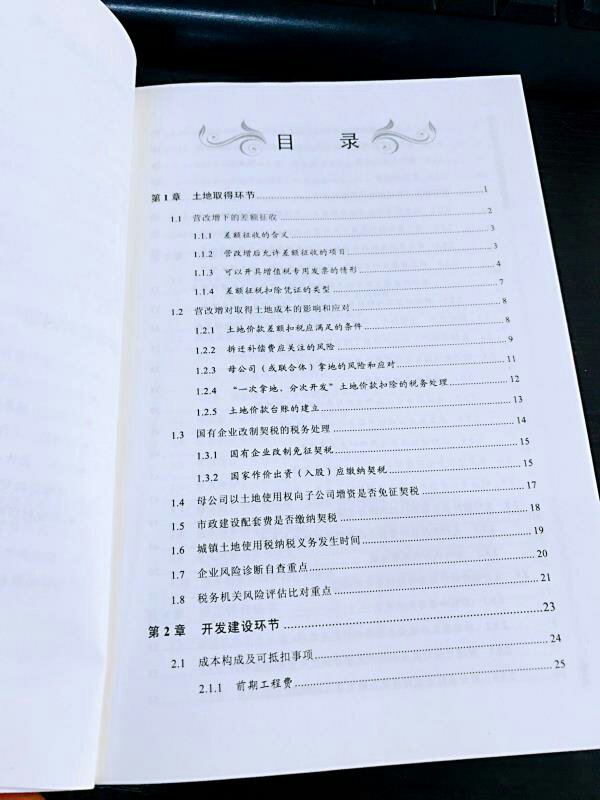 目 录
第1章 土地取得环节 1
1.1 营改增下的差额征收 2
1.1.1 差额征收的含义 3
1.1.2 营改增后允许差额征收的项目 3
1.1.3 可以开具增值税专用发票的情形 4
1.1.4 差额征税扣除凭证的类型 7
1.2 营改增对取得土地成本的影响和应对 8
1.2.1 土地价款差额扣税应满足的条件 8
1.2.2 拆迁补偿费应关注的风险 9
1.2.3 母公司（或联合体）拿地的风险和应对 11
1.2.4 “一次拿地、分次开发”土地价款扣除的税务处理 12
1.2.5 土地价款台账的建立 13
1.3 国有企业改制契税的税务处理 14
1.3.1 国有企业改制免征契税 15
1.3.2 国家作价出资（入股）应缴纳契税 15
1.4 母公司以土地使用权向子公司增资是否免征契税 17
1.5 市政建设配套费是否缴纳契税 18
1.6 城镇土地使用税纳税义务发生时间 19
1.7 企业风险诊断自查重点 20
1.8 税务机关风险评估比对重点 21
第2章 开发建设环节 23
2.1 成本构成及可抵扣事项 24
2.1.1 前期工程费 25